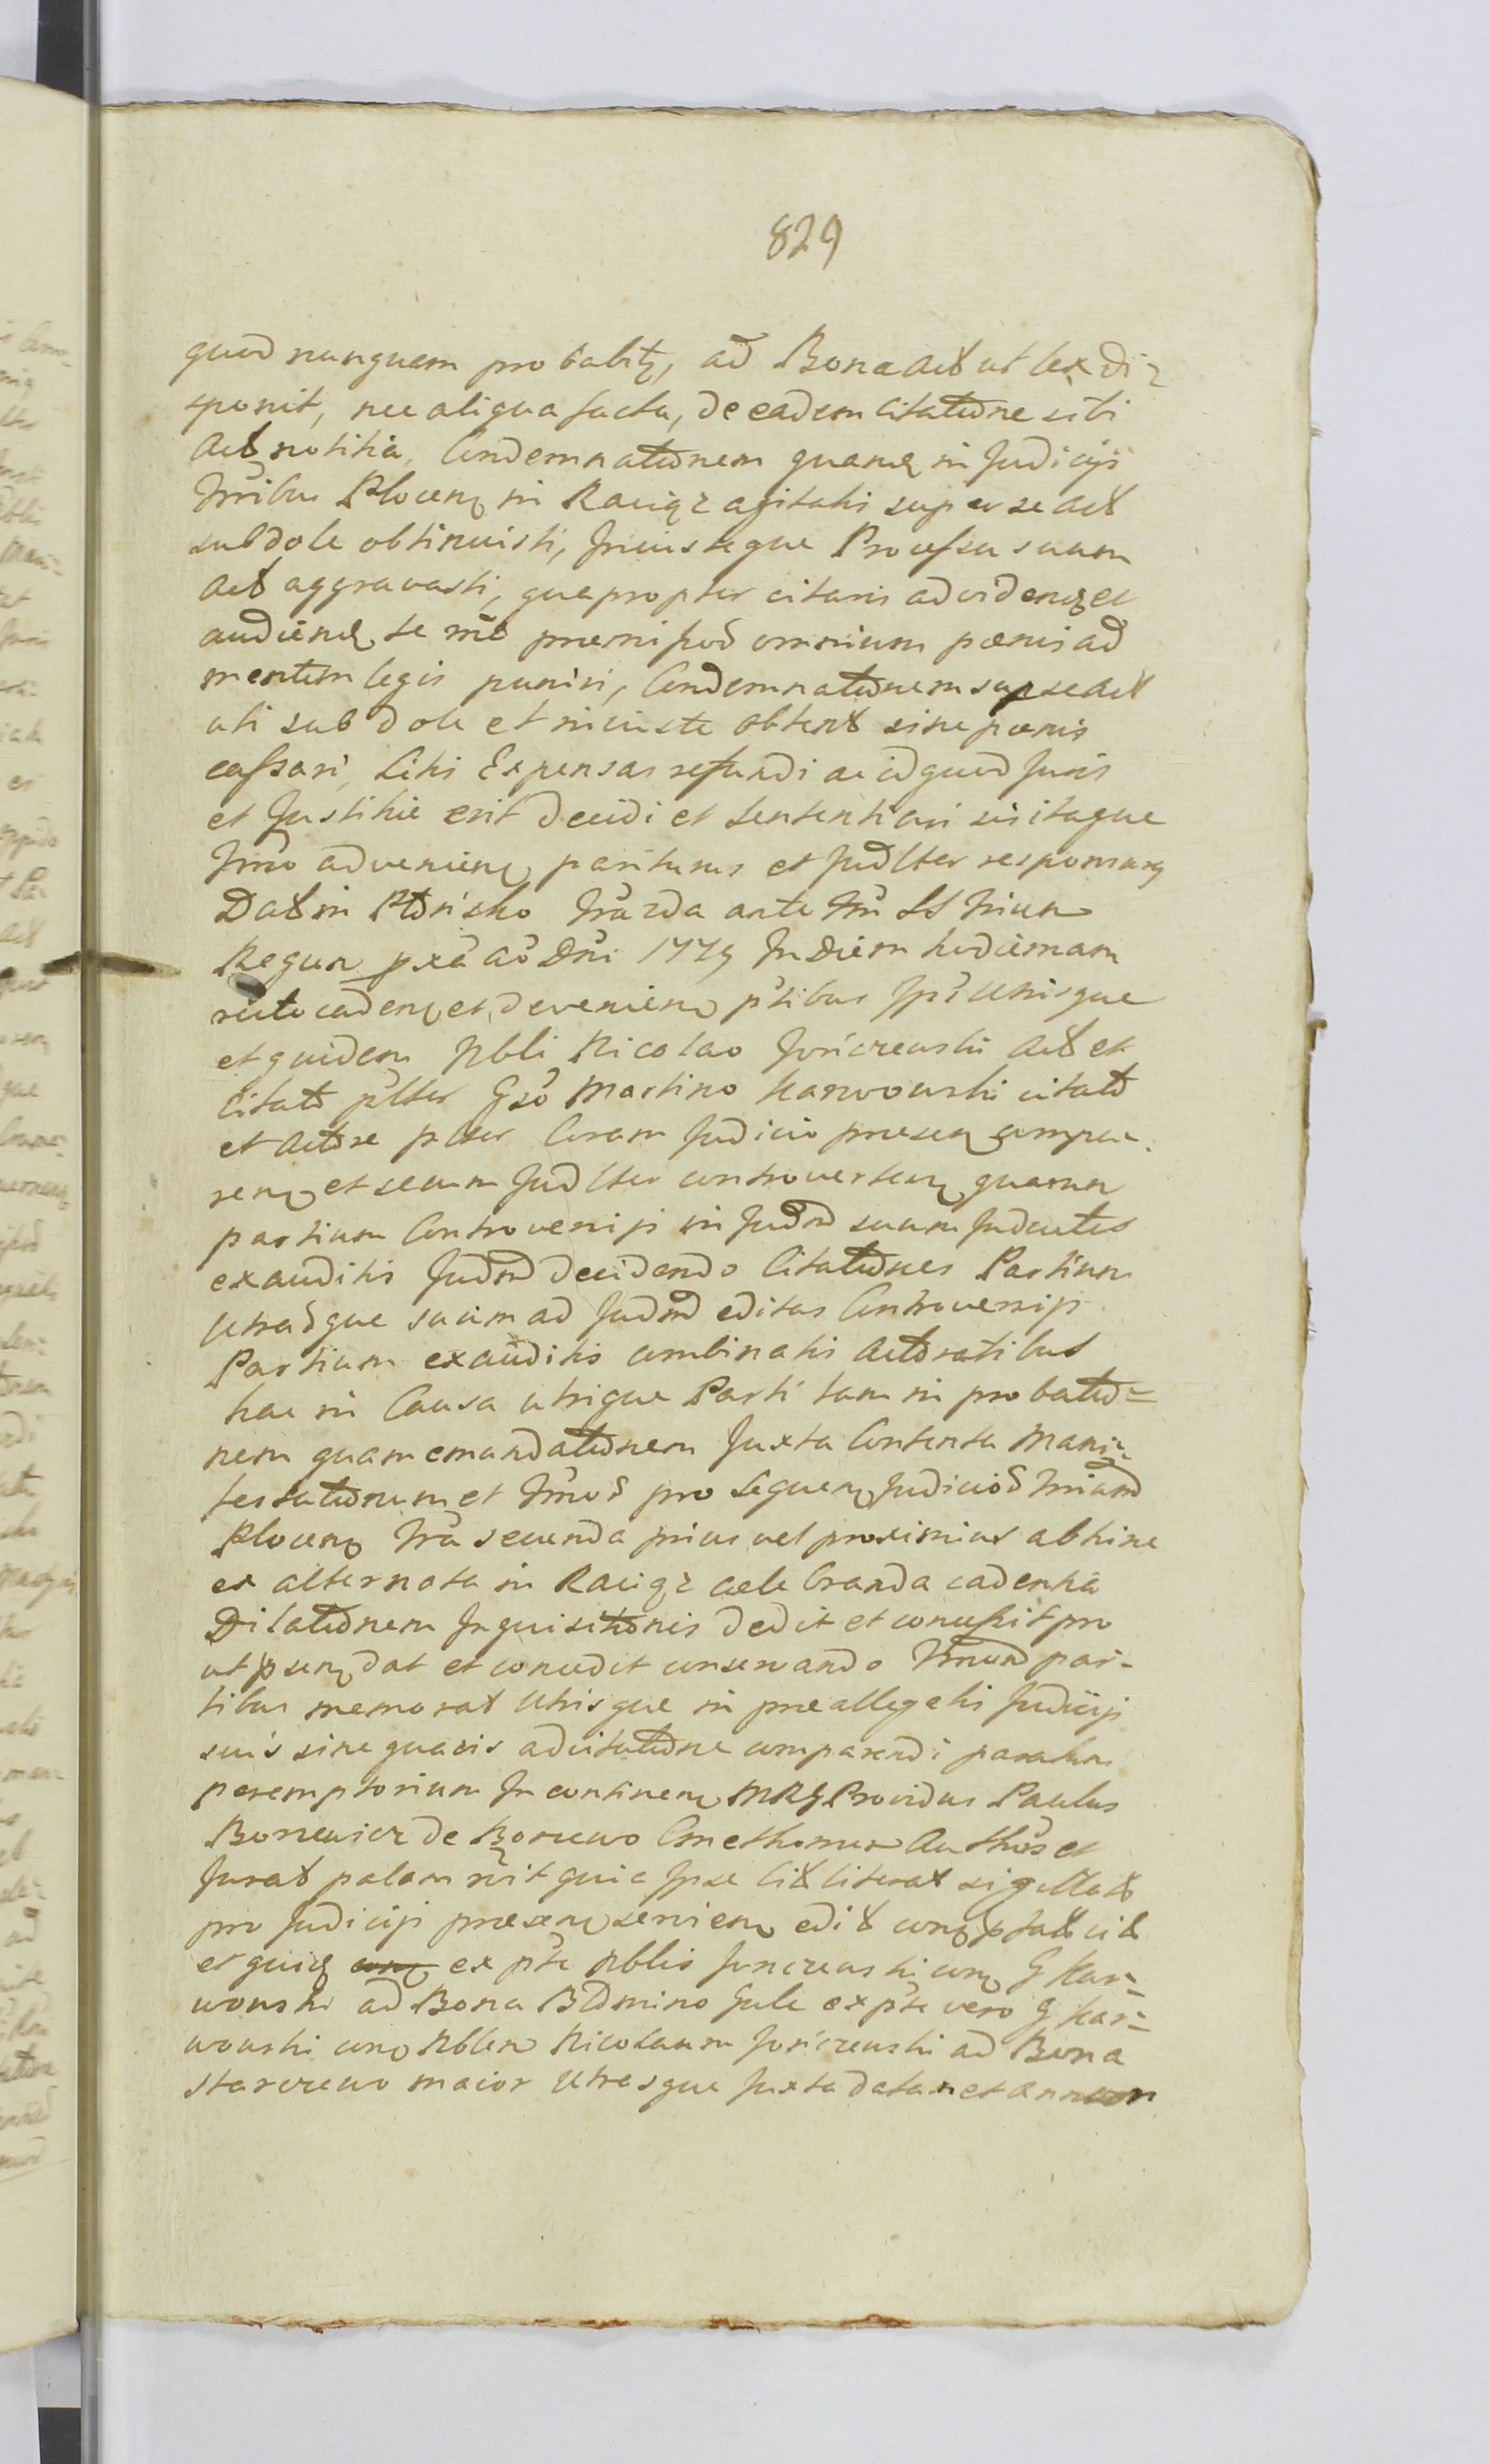 829
quod nunquam probabitr, ad Bona Act ut lex di=
sponit, nec aliqua facta, de eadem Citatione sibi
Act notitia, Condemnationem quamq in Judicijs
Trribus Plocen in Raciąz agitatis super se Act
subdole obtinuisti, Iniusteque Processu suum
Act aggravasti, quapropter citaris ad viden et
audien te rne praemissor omnium paenis ad
mentem legis puniri, Condemnationem sup se Act
uti subdole et iniuste obtent sine paenis
cassari, Litis Expensas refundi ac id quod Juris
et Justitiae erit decidi et sententiari sis itaque
Trrno advenien pariturus et Judlter responsurus
Dat in Płońsko Fra 2da ante Frm SS Trium
Regum pxa Ao Dni 1779 In Diem hodiernam
recte caden et devenien ptibus Ips Utrisque
et quidem Nbli Nicolao Jończewski Act et
Citato pltser Gso Martino Karwowski citato
et Actore plser Coram Judicio praesen compa=
ren et secum Judlter controverten quarum
partium Controversijs in Judm suum Judentes
exauditis Judm decidendo Citationes Partium
Utrasque suum ad Judm editas Controversijs
Partium exauditis combinatis Actoratibus
hac in Causa utrique Parti tam in probatio=
nem quam emundationem Juxta Contenta Mani=
festationum et Trnos pro sequen Judicior Trium
Plocen Fra secunda prius vel proximius abhinc
ex alternata in Raciąz celebranda cadentia
Dilationem Inquisitionis dedit et concessit pro
ut psen dat et concedit conservando Trnum par=
tibus memorat Utrisque in praeallegatis Judicijs
suis sine quavis adcitatione comparendi paratum
peremptorium In continen MRG Providus Paulus
de Cmethonum Authos et
Jurat palam rcit quia Ipse Cit literat sigillat
pro Judicijs praesen servien edit con pstat cit
et quiq con ex pte Nblis Jonczewski con G Kar=
wowski ad Bona B Domino Gule ex pte vero G Kar=
wowski con Nblem Nicolaum Jończewski ad Bona
Starczewo maior Utrasque Juxta datam et annum